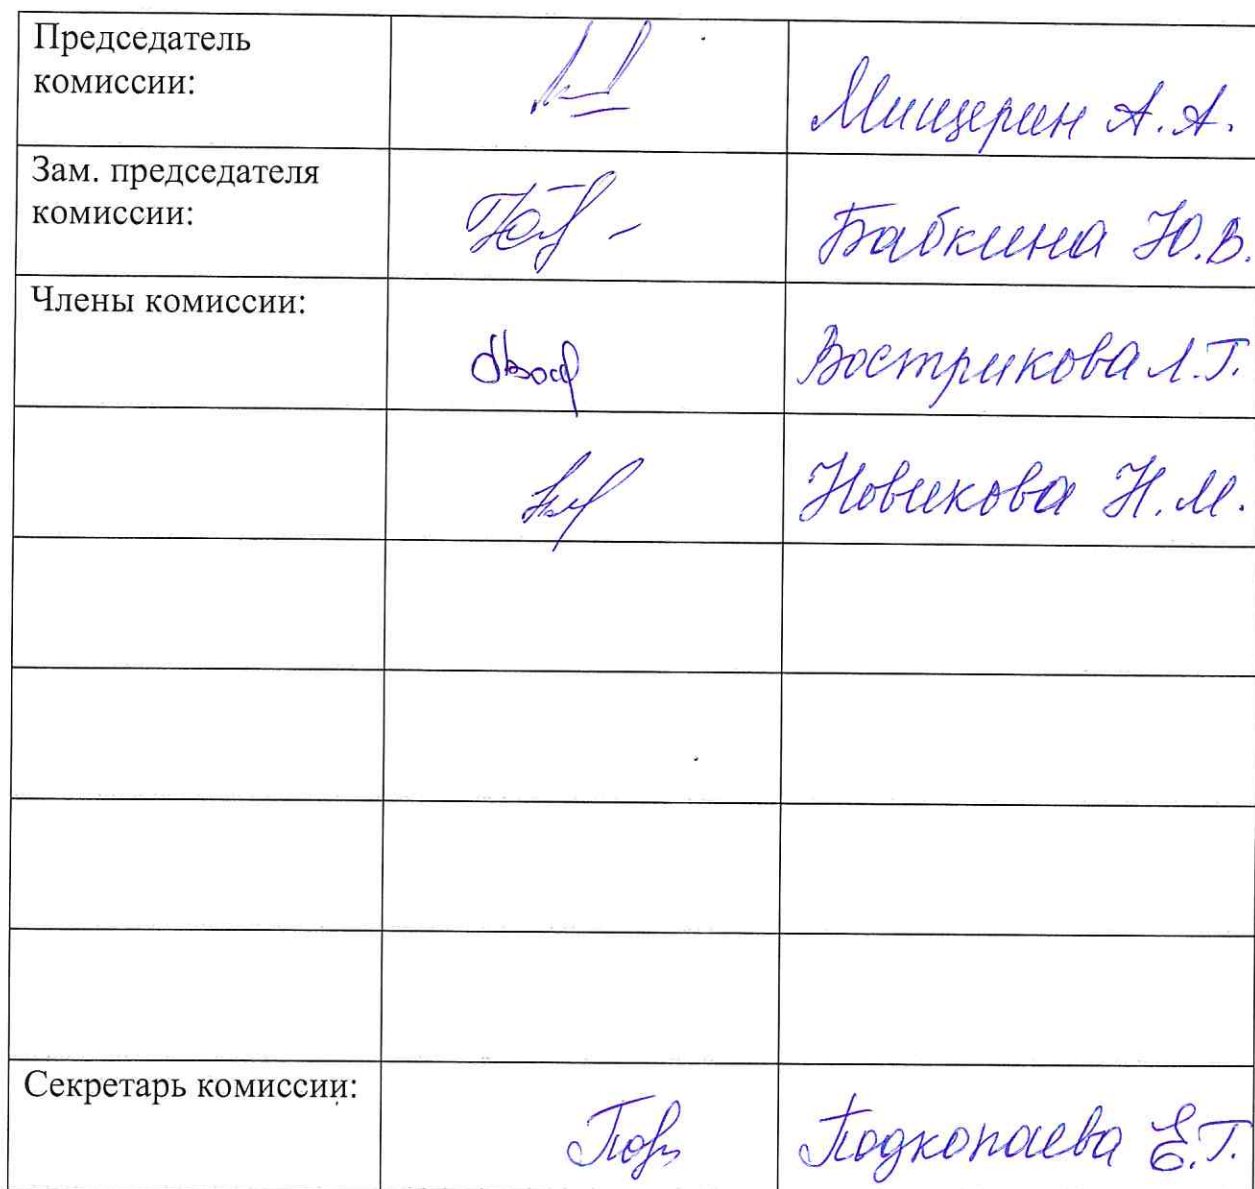 Председатель
комиссии:
Мищерин А.А.
Зам. председателя
комиссии:
Бабкина Ю.В.
Члены комиссии:
Вострикова Л.Г.
Новикова Н.М.
Секретарь комиссии:
Подкопаева Е.Г.